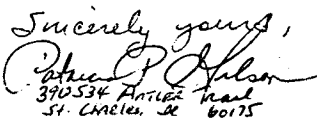 Sincerely yours,
Patricia P. Wilson
39W534 Antler Trail
St. Charles, IL 60175